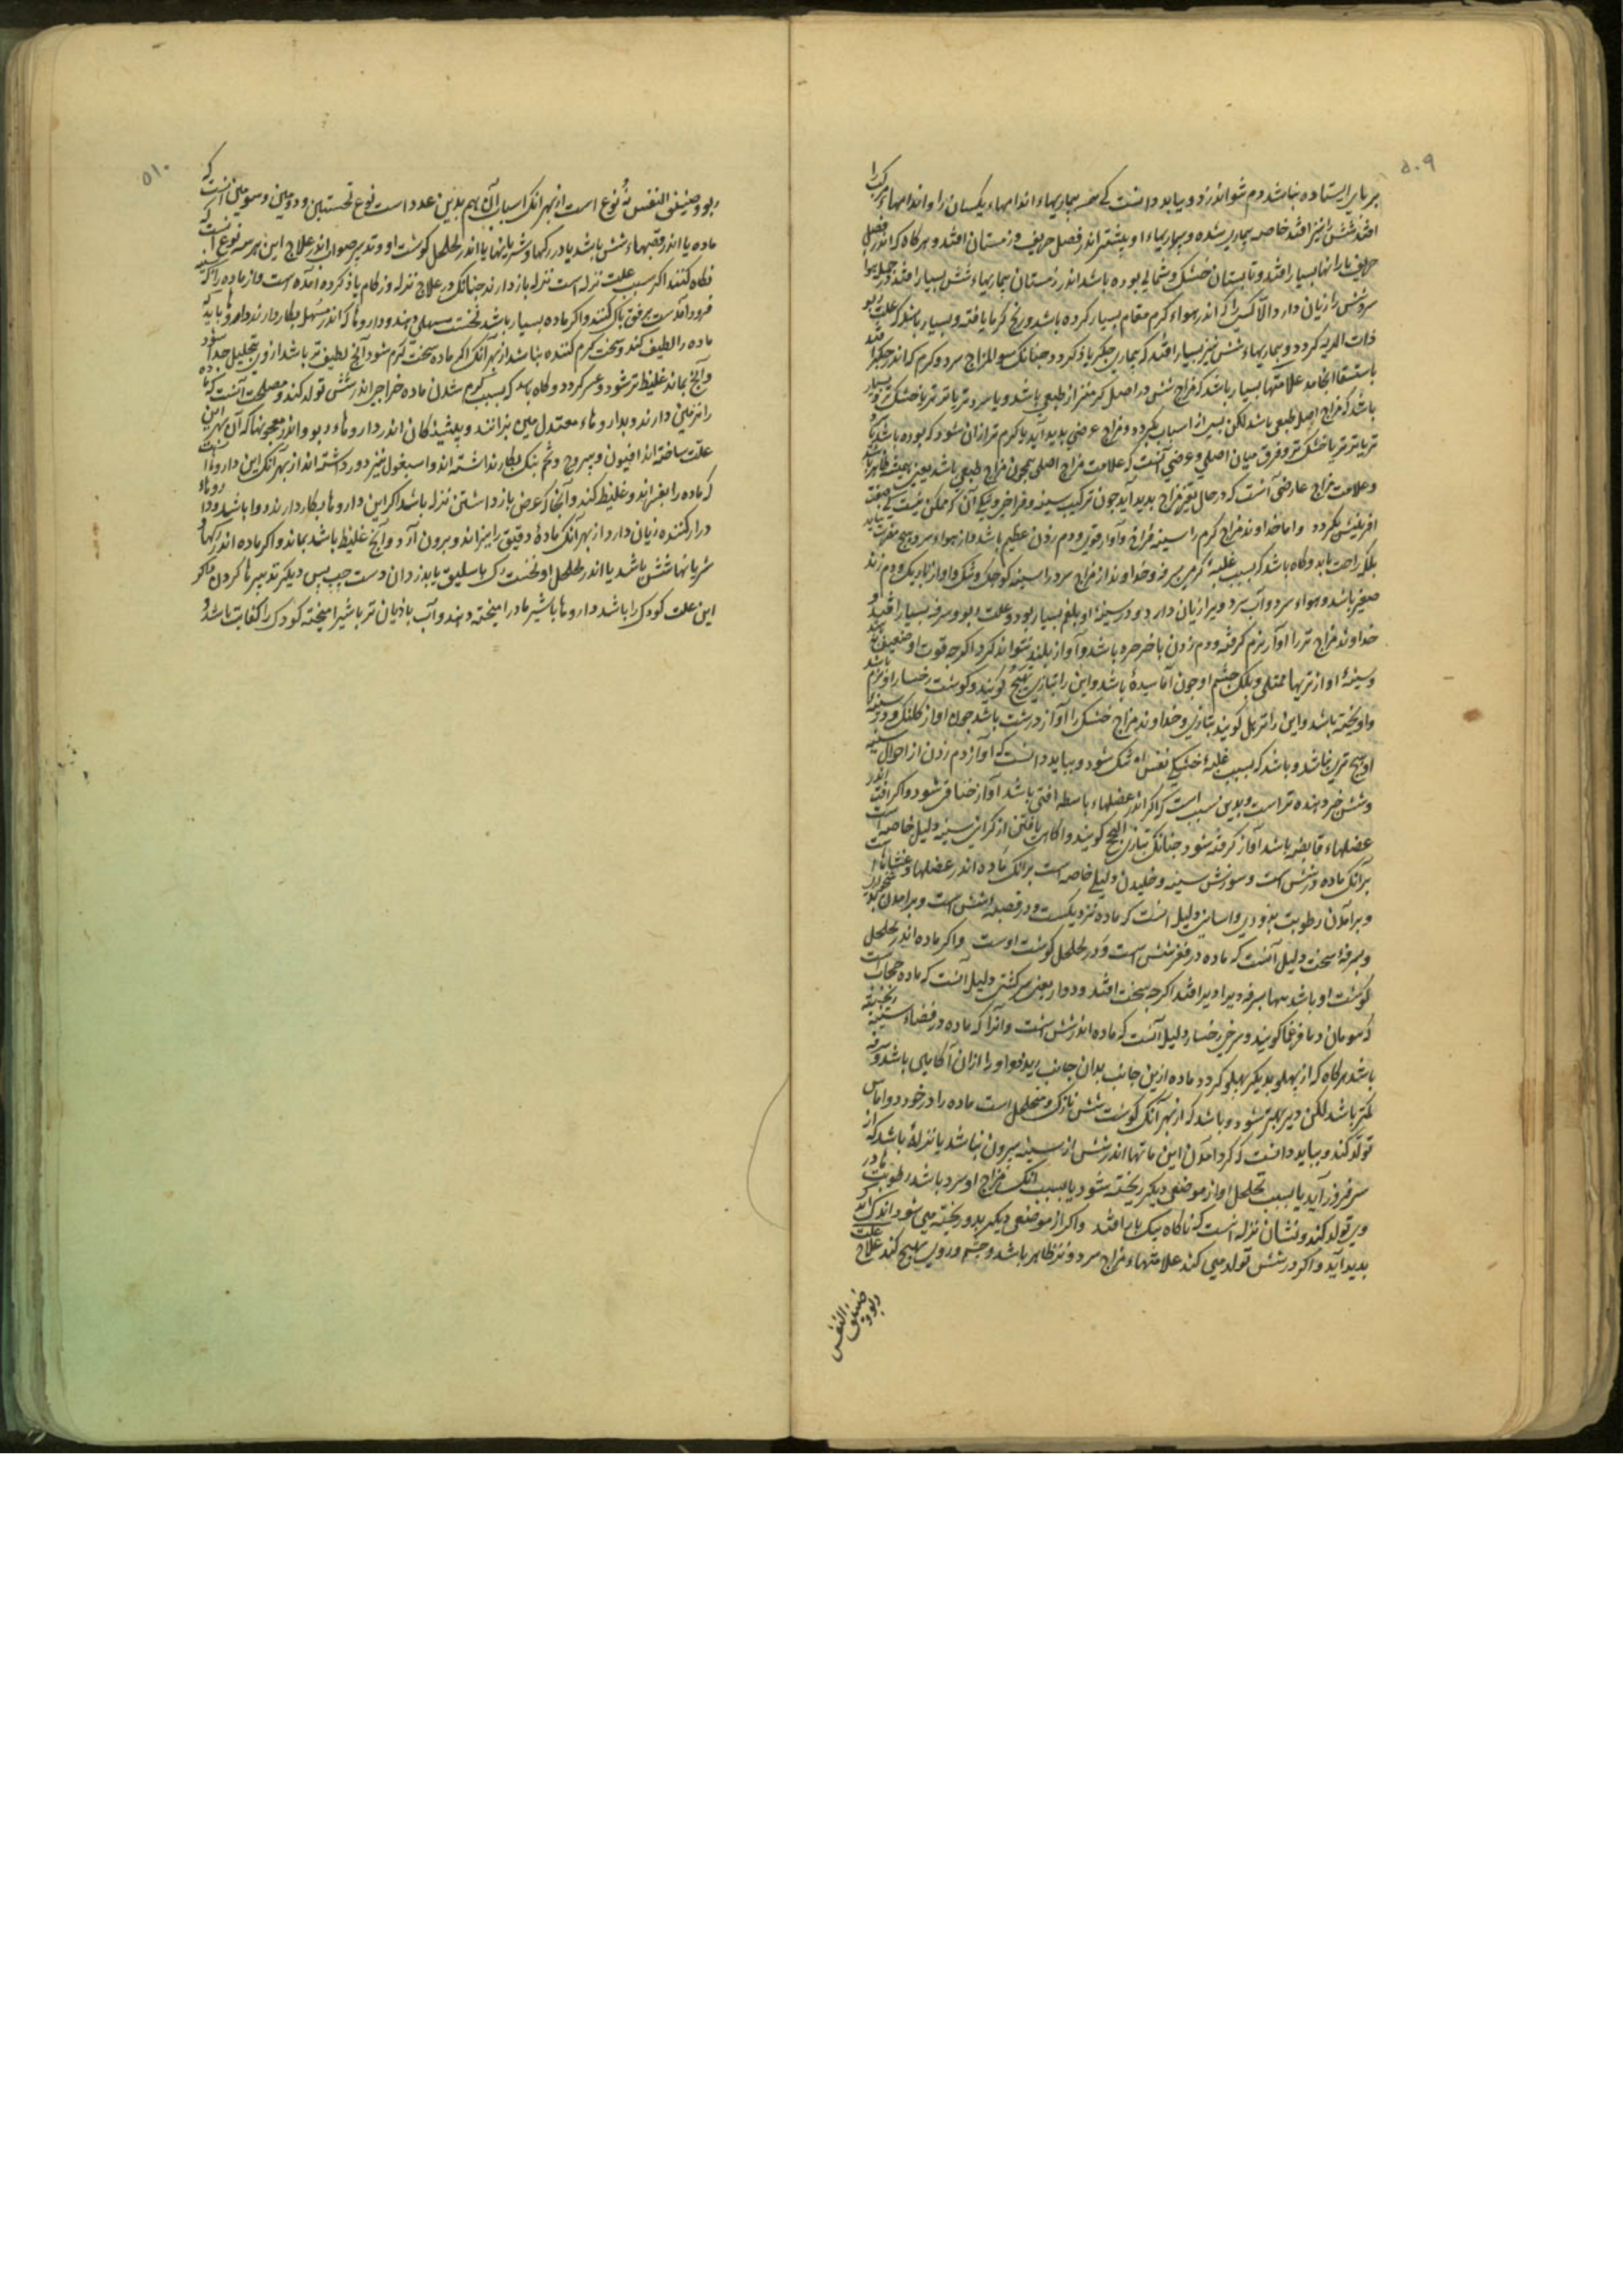 ۵۰۹
بر پای ایستاده نباشد دم نتواند زد و بباید دانست که همه بیماریهاء اندامهاء یکسان را و اندامهاء مرکب را
افتد شش را نیز افتد خاصه بیماری سده و بیماریهاء او بیشتر اندر فصل خریف و زمستان افتد و هرگاه که اندر فصل
خریف بارانها بسیار افتد و تابستان خشک و شمالی بوده باشد اندر زمستان بیماریهاء شش بسیار افتد و
سرد شش را زیان دارد الا آن کسی را که اندر هواء گرم مقام بسیار کرده باشد و رنج گرما یافته و بسیار باشد که علت ربو
ذات الریه گردد و بیماریهاء شش نیز بسیار افتد که بیماری جگر باز گردد چنانک سوء المزاج سرد و گرم که اندر جگر افتد
باستسقا انجامد علامتها بسیار باشد که مزاج شش در اصل گرمتر از طبیعی باشد و یا سردتر یا تر تر یا خشک تر و بسیار
باشد که مزاج اصل طبیعی باشد لکن بسی از اسباب بگردد و مزاج عرضی پدید آید یا گرم تر از آن شود که بوده باشد یا
تر یا خشک تر و فرق میان اصلی و عرضی آنست که علامت مزاج اصلی همچون مزاج طبیعی باشد یعنی همیشه ظاهر باشد
و علامت مزاج عارضی آنست که در حال تغیر مزاج پدید آید چون ترکیب سینه و فراخی و تنگی آن که ممکن نیست که
آفرینش بگردد و اما خداوند مزاج گرم را سینه فراخ و آواز قوی و دم زدن عظیم باشد و از هواء سرد هیچ مضرت نیابد
بلکی راحت یابد و گاه باشد که بسبب غلبه گرمی سرفه و خداوند مزاج سرد را سینه کوچک و تنگ و آواز باریک و دم زدن
صغیر باشد و هواء سرد و آب سرد ویرا زیان دارد و در سینه او بلغم بسیار بود و علت ربو و سرفه بسیار افتد او
خداوند مزاج تر را آواز نرم گرفته و دم زدن با خرخره باشد و آواز بلند نتواند کرد اگرچه قوت او ضعیف نباشد
و سینه او از تریها ممتلی و پلک چشم او چون آماسیده باشد و این را بتازی تهیج گویند و گوشت رخسار او نرم باشد
و آویخته باشد و این را ترهل گویند بتازی و خداوند مزاج خشک را آواز درشت باشد چون آواز کلنگ و در سینه
او هیچ تری نباشد و باشد که بسبب غلبه خشکی نفس او تنگ شود و بباید دانست که آواز دم زدن از احوال سینه
و شش خبر دهنده تر است و بدین سبب است که اگر اندر عضلهاء باسطه آفتی باشد آواز خناقی شود و اگر آفت اندر
عضلهاء قابضه باشد آواز گرفته شود چنانک بتازی ابح گویند و آگاهی یافتن از گرانی سینه دلیل خاصه است
بر آنک ماده در شش است و سوزش سینه و خلیدن دلیلی خاصه است بر آنک ماده اندر عضلها و غشاهاست
و بر آمدن رطوبت بزودی و آسانی دلیل آنست که ماده نزدیکست و در قصبه شش است و بر آمدن بدیری
و سرفه سخت دلیل آنست که ماده در قعر شش است و در خلخل گوشت اوست و اگر ماده اندر خلخل
گوشت او باشد تنها سرفه ویرا دیر افتد اگرچه سخت افتد و دوار یعنی سر گشتن دلیل آنست که ماده حجاب است
که مومان دیافرغما گویند و سرخی رخسار دلیل آنست که ماده اندر شش است و آنرا که ماده در فضاء سینه ریخته
باشد هرگاه که از پهلو بدیگر پهلو گردد ماده ازین جانب بدان جانب ریزد و او را از آن آگاهی باشد و سرفه
کمتر باشد لکن دیر بهتر شود و باشد که از بهر آنک گوشت شش نازک و متخلخل است ماده را در خورد و آماس
تولد کند و بباید دانست که گرد آمدن این ماتها اندر شش از سینه بیرون نباشد یا نزله باشد که از
سر فروز آید یا بسبب تخلخل او از موضعی دیگر ریخته شود یا بسبب آنک مزاج او سرد باشد رطوبتها در
وی تولد کند و نشان نزله آنست که ناگاه بیک بار افتد و اگر از موضعی دیگر بدو ریخته می شود اندک اندک
پدید آید و اگر در شش تولد می کند علامتهاء مزاج سرد و تر ظاهر باشد و چشم و روی تهیج کند علاج علت
ربو و
ضیق النفس
۵۱۰
ربو و ضیق النفس نه نوع است از بهر آنک اسباب آن هم بدین عدد است نوع نخستین و دومین و سومین آنست که
ماده یا اندر قصبهاء شش باشد یا در رگها و شریانها یا اندر خلخل گوشت او و تدبیر صواب اندر علاج این هر سه نوع آنست که
نگاه کنند اگر سبب علت نزله است نزله باز دارند چنانک در علاج نزله و زکام یاد کرده آمده است و از ماده را که بسینه
فرود آمدست برفق پاک کنند و اگر ماده بسیار باشد نخست مسهل دهند و داروها که اندر مسهل بکار دارند داروها باید که
ماده را لطیف کند و سخت گرم کننده نباشد از بهر آنک اگر ماده سخت گرم شود آنچ لطیف تر باشد از وی بتحلیل جدا شود
و آنچ بماند غلیظ تر شود و عسر گردد و گاه باشد که بسبب گرم شدن ماده خراجی اندر شش تولد کند و مصلحت آنست که ماده
را تر می دارند و بداروهاء معتدل می پزانند و پیشیذگان اندر داروهاء ربو و اندر معجونها که آن بهر این
علت ساخته اند افیون و یبروج و تخم بنگ بکار نداشته اند و اسبغول نیز دور داشته اند از بهر آنک این داروها آنست
که ماده را بفسراند و غلیظ کند و آنجا که غرض باز داشتن نزله باشد اگر این داروها بکار دارند روا باشد و داروهاء
درار کننده زیان دارد از بهر آنک ماده رقیق را براند و بیرون آرد و آنچ غلیظ باشد بماند و اگر ماده اندر رگها و
شریانها شش باشد یا اندر خلخل او نخست رگ باسلیق باید زد از دست چپ پس دیگر تدبیرها کردن و اگر
این علت کودک را باشد داروها با شیر مادر آمیخته دهند و آب بادیان تر با شیر آمیخته کودک را کفایت باشد و